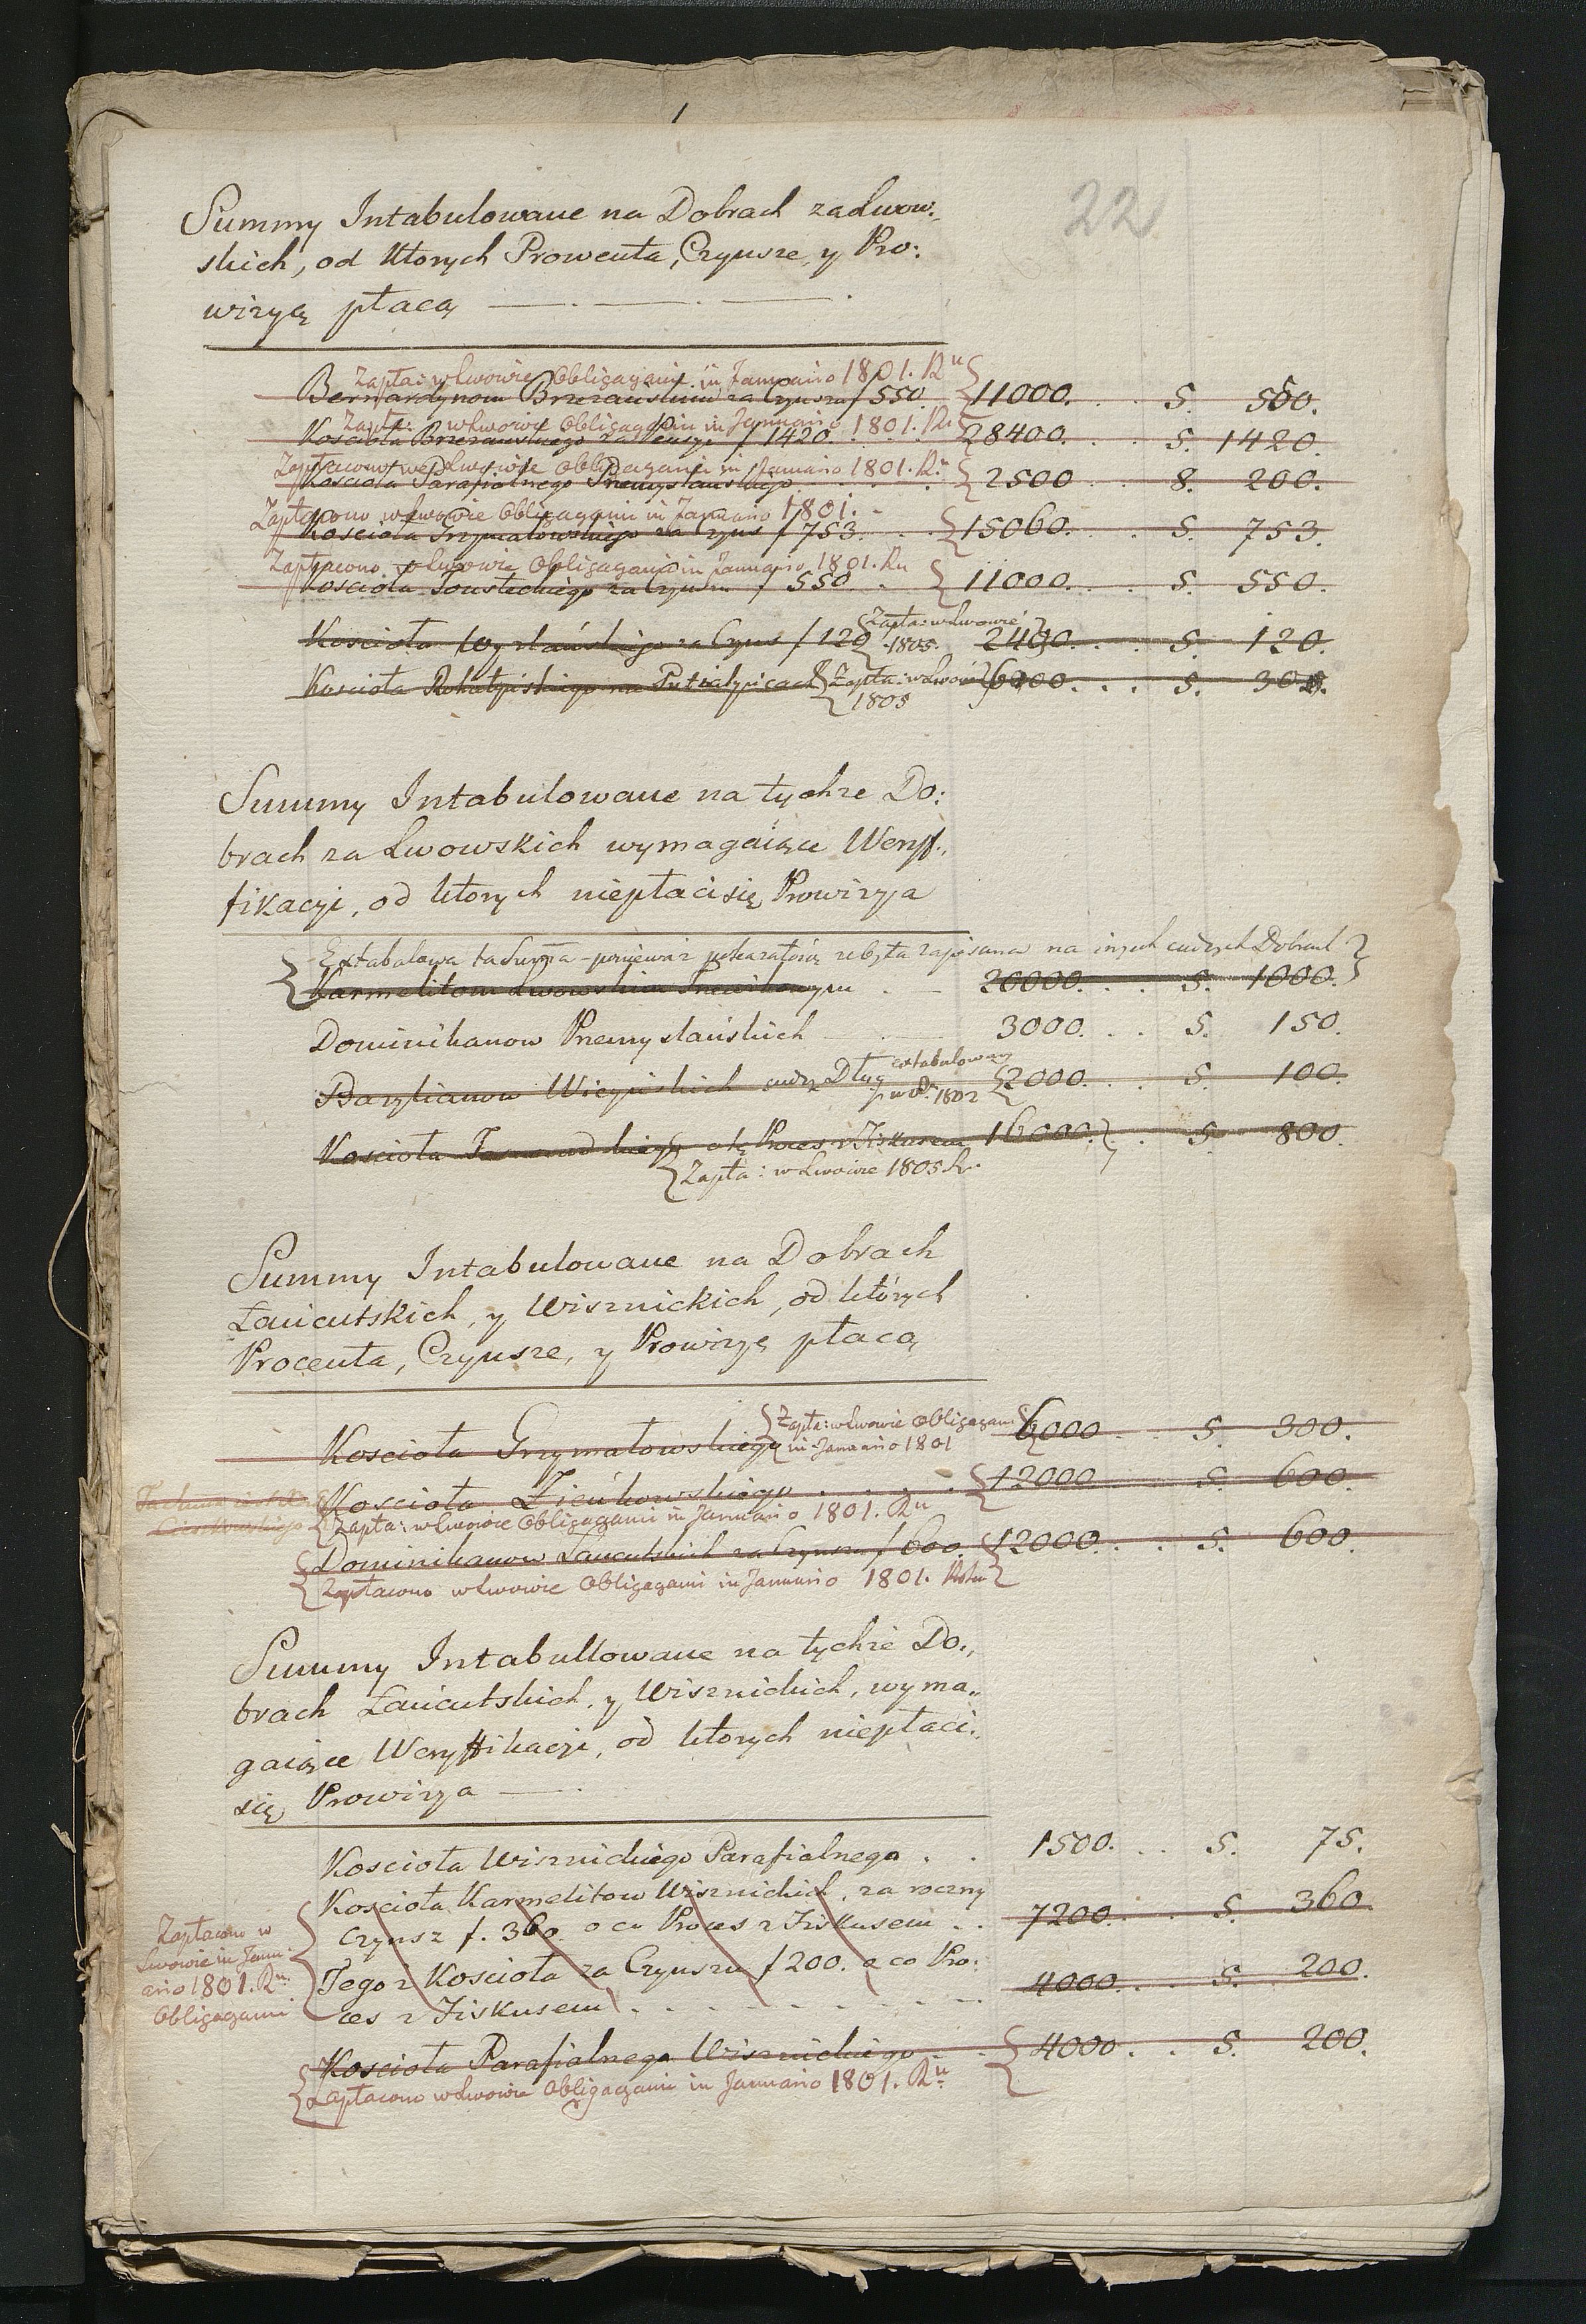 1
22
Summy Intabulowane na Dobrach zaLwow:
skich, od ktorych Prowenta, Czynsze, y Pro:
wizyą płacą
Zapła: w Lwowie Obligagami in Januario 1801. Ru
Bernardynom Brzezańskim za Czynsz f 550 11000. 5. 550.
Zapła: w Lwowie Obligagami in Januario 1801. Ru
Koscioła Brzezanskiego za f 1420 28400. 5. 1420.
Zapłacono we Lwowie Obligagami in Januario 1801. Ru
Koscioła Parafialnego Przemyslanskiego 2500 8. 200.
Zapłacono w Lwowie Obligagami in Januario 1801.
Kosciola Grzymałowskiego za Czyns f 753. 15060. 5. 753.
Zapłacono w Lwowie Obligagami in Januario 1801. Ru
Kosciola Tousteckiego za Czynsz f 550 11000. 5. 550.
Zapła: w Lwowie
Kosciola za Czyns f 120 1805. 2400. 5. 120.
Kosciola na Zapła: w Lwowie 6000. 5. 300.
1805
Summy Intabulowane na tychze Do:
brach za Lwowskich wymagaiące Weryf:
fikacyi, od ktorych niepłaci się Prowizya
Extabulowa ta Summa poniewaz pokazało się ze była zapisana na inych cudzych Dobrach
Karmelitom Lwowskim Trzewikowym 20000. 5. 1000.
Dominikanow Przemyslańskich 3000. 5. 150.
extabulowany
Bazylianow cudzy Dług 2000. 5. 100.
w R: 1802
Kosciola o tę Proces z Fiskusem 16000. 5. 800.
Zapła: w Lwowie 1805 R.
Summy Intabulowane na Dobrach
Łancutskich, y Wisznickich, od ktorych
Procenta, Czynsze, y Prowizyę płacą
Zapła: w Lwowie Obligagami
Kosciola Grzymałowskiego in Januario 1801 6000 5. 300.
Kosciola Zieńkowskiego 12000 5. 600.
Zapła: w Lwowie Obligagami in Januario 1801. Ru
Dominikanow Łancutskich za Czynsz f 600. 12000. 5. 600.
Zapłacono w Lwowie Obligagami in Januario 1801. Roku
Summy Intabullowane na tychże Do:
brach Łancutskich, y Wisznickich, wyma:
gaiące Weryffikacyi, od ktorych niepłaci:
się Prowizya
Kosciola Wisznickiego Parafialnego 1500. 5. 75.
Kosciola Karmelitow Wisznickich, za roczny
Czynsz f. 360. o co Proces z Fiskusem 7200. 5. 360.
Tegoz Kosciola za Czynsz f 200. o co Pro:
ces z Fiskusem 4000. 5. 200.
Zapłacono w
Lwowie in Janu:
ario 1801. Ru
Obligagami
Kosciola Parafialnego Wisznickiego 4000. 5. 200.
Zapłacono w Lwowie Obligagami in Januario 1801. Ru